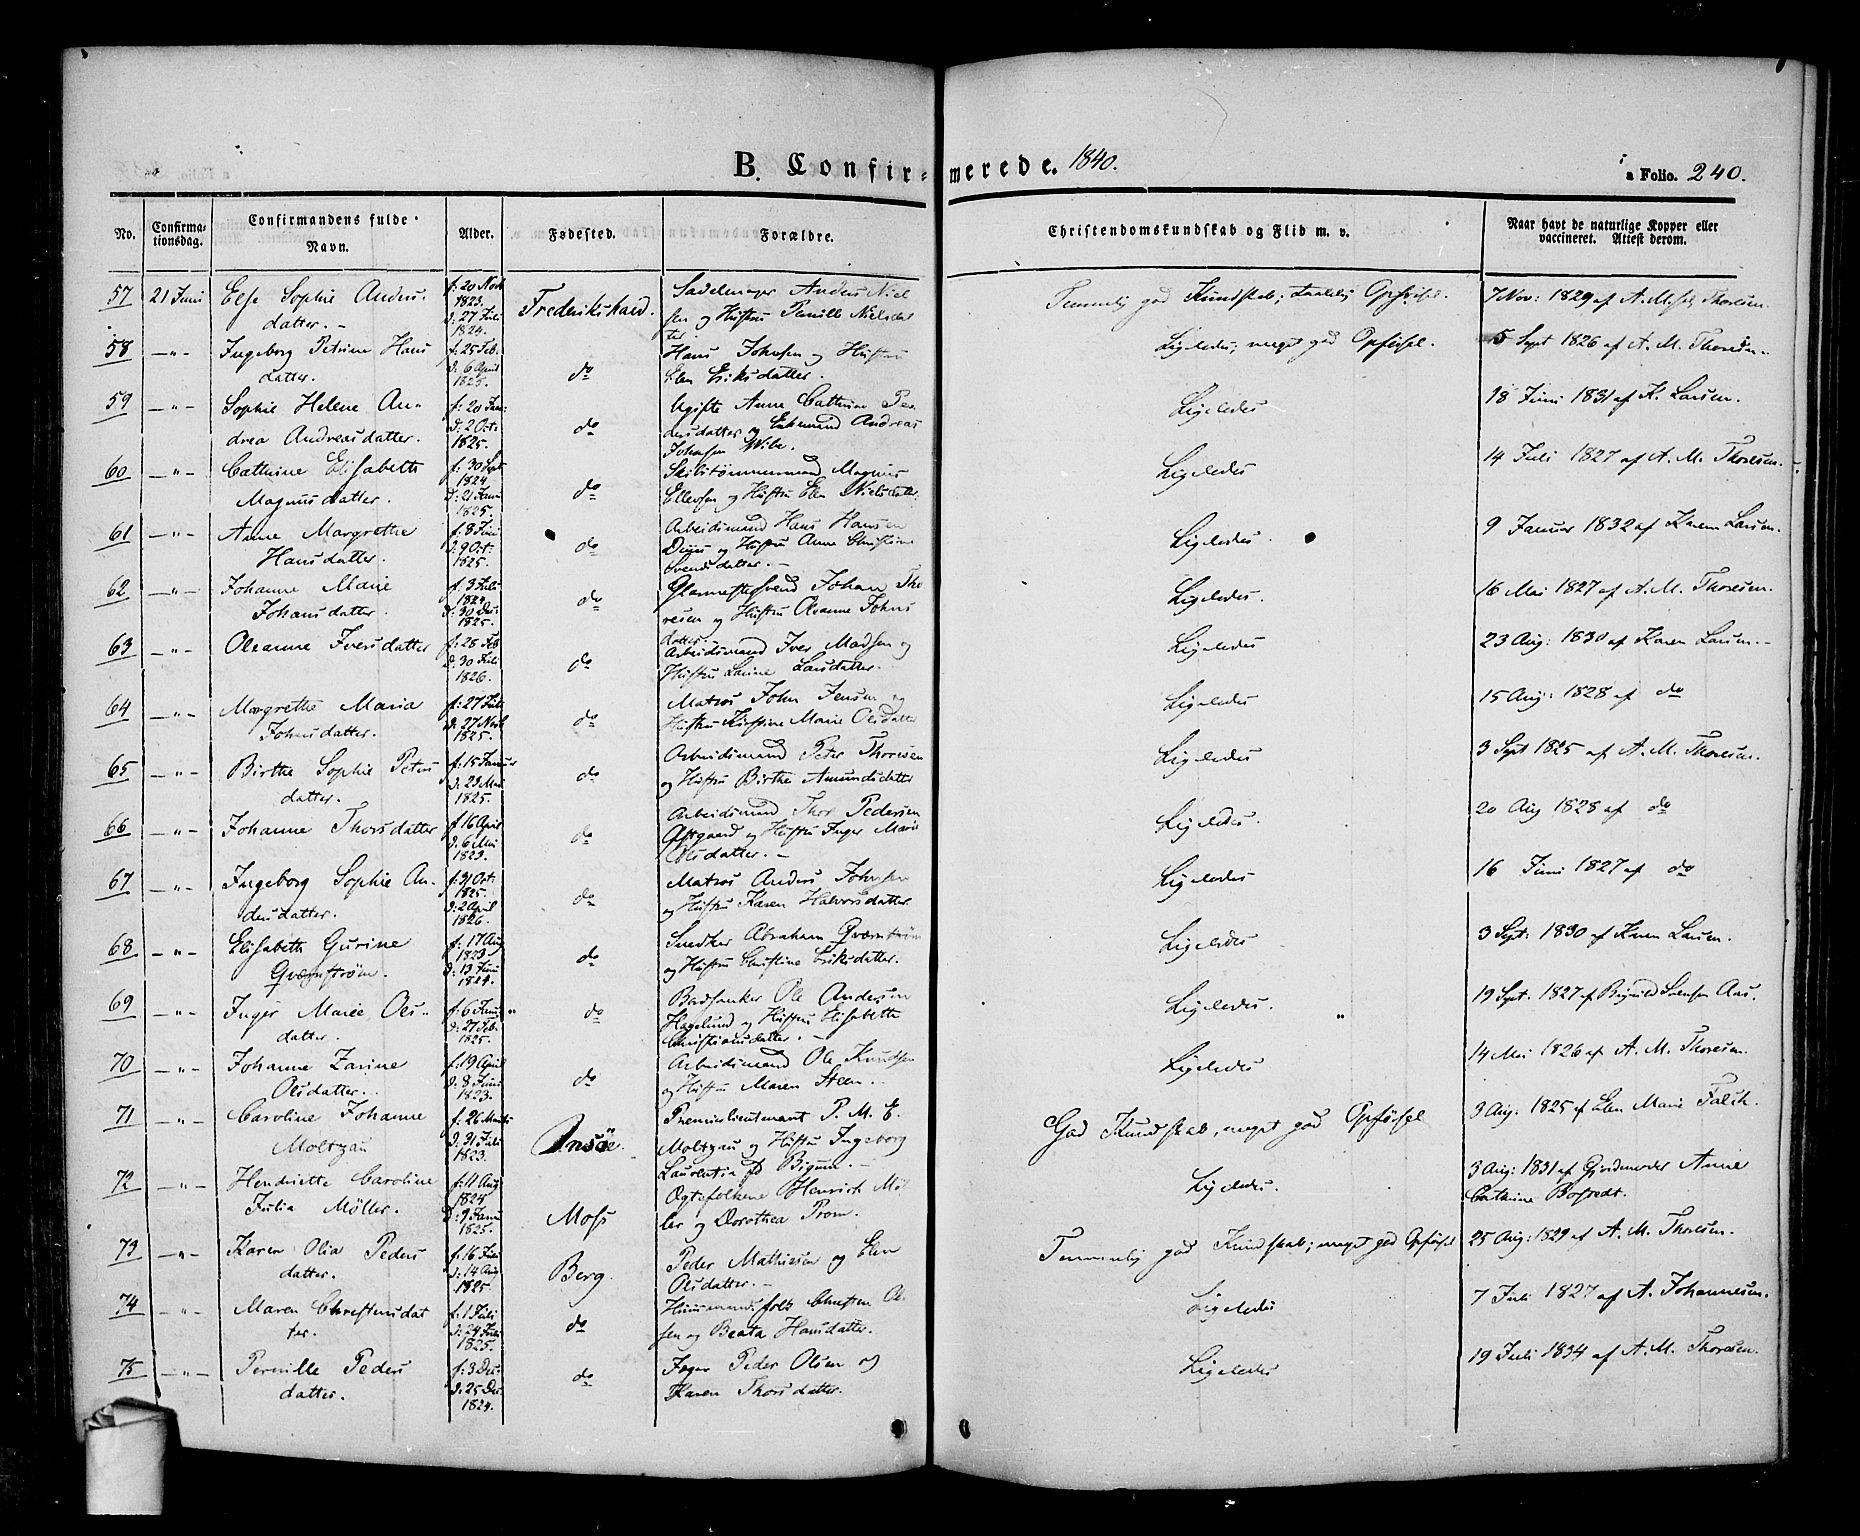 B. Confirmerede. 1840.
a Folio. 240.
No. Confirmationsdag. Confirmandens fulde Navn. Alder. Fødested. Forældre. Christendomskundskab og Flid m. v. Naar havt de naturlige Kopper eller vaccineret. Attest derom.
57 21 Juni Else Sophie Anders- f: 20 Novb 1823. Frederikshald. Sadelmager Anders Niel Temmelig god Kundskab; taalelig Opførsel. 7 Nov: 1829 af A. M. Thoresen
datter. - d: 27 Juli 1824. sen og Hustru Pernille Nielsdatter
58 -"- Ingeborg Petrine Hans f: 25 Feb. Hans Johnsen og Hustru Ligeledes; meget god Opførsel. 5 Sept 1826 af A. M. Thoresen.
datter. d: 6 April 1825. do Elen Eriksdatter.
59 -"- Sophie Helene An- f: 20 Jan: Ugifte Anne Cathrine Pe- Ligeledes 18 Juni 1831 af K. Larsen.
drea Andreasdatter. d: 2 Oct. 1825. do dersdatter og Enkemand Andreas
Johnsen Wibe.
60 -"- Cathrine Elisabeth f: 30 Sept 1824 Skibstømmermand Magnus Ligeledes 14 Juli 1827 af A. M. Thoresen.
Magnusdatter. d: 21 Janu 1825. do Ellevsen og Hustru Elen Nielsdatter.
61 -"- Anne Margrethe f: 8 Juni Arbeidsmand Hans Hansen Ligeledes. 9 Januar 1832 af Karen Larsen.
Hansdatter. d: 9 Oct. 1825. do og Hustru Anne Christine
Svendsdatter. -
62 -"- Johanne Marie f: 3 Juli 1824 Glarmestersvend Johan Tho Ligeledes. 16 Mai 1827 af A. M. Thoresen.
Johansdatter. d: 30 Dec. 1825. do resen og Hustru Oleanne Johns
datter.
63 -"- Oleanne Iversdatter f: 28 Feb Arbeidsmand Iver Madsen og Ligeledes 23 Aug: 1830 af Karen Larsen. -
d: 30 Juli 1826. do Hustru Larine Larsdatter. -
64 -"- Margrethe Maria f: 27 Juli Matros John Jensen og Ligeledes 15 Aug: 1828 af do
Johnsdatter. d: 27 Novb 1825. do Hustru Kirstine Marie Olsdatter
65 -"- Birthe Sophie Peters f: 15 Januar Arbeidsmand Peter Thoresen Ligeledes 3 Sept 1825 af A. M. Thoresen.
datter. d: 23 Mai 1825. do og Hustru Birthe Amundsdatter
66 -"- Johanne Thorsdatter f: 16 April Arbeidsmand Thor Pedersen Ligeledes. 20 Aug 1828 af do
d: 6 Mai 1823. do Østgaard og Hustru Inger Marie
Olsdatter. -
67 -"- Ingeborg Sophie An- f: 31 Oct: 1825. Matros Anders Johnsen Ligeledes 16 Juni 1827 af do
dersdatter. d: 2 April 1826. do og Hustru Karen Halvorsdatter
68 -"- Elisabeth Gurine f: 17 Aug 1823 Snedker Abraham Qværnstrøm Ligeledes 3 Sept: 1830 af Karen Larsen.
Qværnstrøm. d: 13 Juni 1824. do og Hustru Christine Eriksdatter.
69 -"- Inger Marie Ols- f: 6 Janu Ole Andersen Ligeledes. 19 Sept. 1827 af Svensen Aas.
datter. d: 27 Feb. 1825. do Hagelund og Hustru Elisabeth
Christiansdatter. -
70 -"- Johanne Zarine f: 19 April Arbeidsmand Ole Knudsen Ligeledes 14 Mai 1826 af A. M. Thoresen.
Olsdatter. d: 8 Juni 1823. do og Hustru Maren Steen. -
71 -"- Caroline Johanne f: 26 Marts Premierlieutenant P. M. E. God Kundskab, meget god Opførsel 3 Aug. 1825 af Elen Marie Falch.
Moltzau d: 31 Juli 1823. Onsøe. Moltzau og Hustru Ingeborg
Laurentia fd Bigum. -
72 -"- Henriette Caroline f: 11 Aug 1824 Ægtefolkene Henrich Møl Ligeledes. 3 Aug: 1831 af Gjordemoder Anne
Julia Møller. d: 9 Janu 1825. Moss ler og Dorothea Prom. Cathrine
73 -"- Karen Olia Peders f: 16 Juli Peder Mathiesen og Elen Temmelig god Kundskab; meget god Opførsel 25 Aug: 1829 af A. M. Thoresen.
datter. d: 14 Aug 1825. Berg. Olsdatter. -
74 -"- Maren Christensdat f: 1 Juli Huusmandsfolk Christen Ol Ligeledes 7 Juli 1827 af A. Johannesen.
ter. d: 24 Juli 1825. do sen og Beata Hansdatter.
75 -"- Pernille Peders f: 3 Dec. Peder Olsen og Ligeledes 19 Juli 1834 af A. M. Thoresen.
datter. d: 25 Dec. 1824. do Karen Thorsdatter.